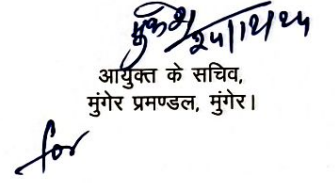 मुकेश
24/12/24
आयुक्त के सचिव,
मुंगेर प्रमण्डल, मुंगेर।
for